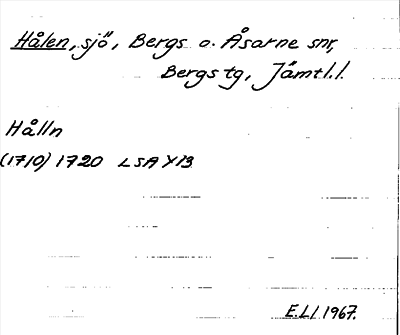 Hålen, sjö, Bergs o. Åsarne snr,
Bergs tg, Jämtl.l.
Hålln
(1710) 1720 LSA Y13
E.Ll 1967.